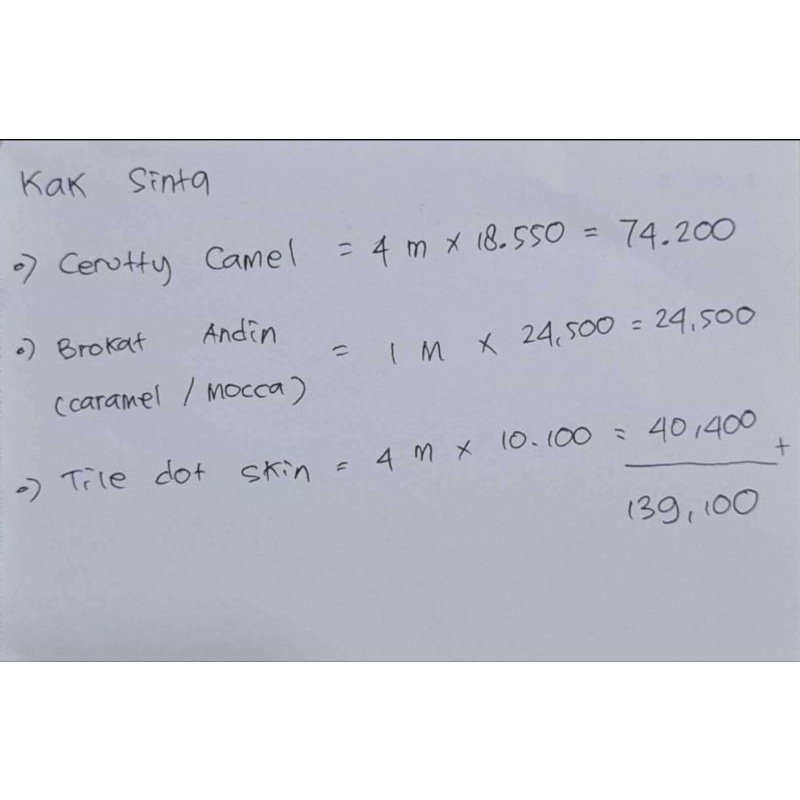 Kak Sinta
•) Cerutty Camel = 4 m x 18.550 = 74.200
•) Brokat Andin = 1 M x 24,500 = 24,500
(caramel / Mocca)
•) Tile dot skin = 4 m x 10.100 = 40,400 +
139,100